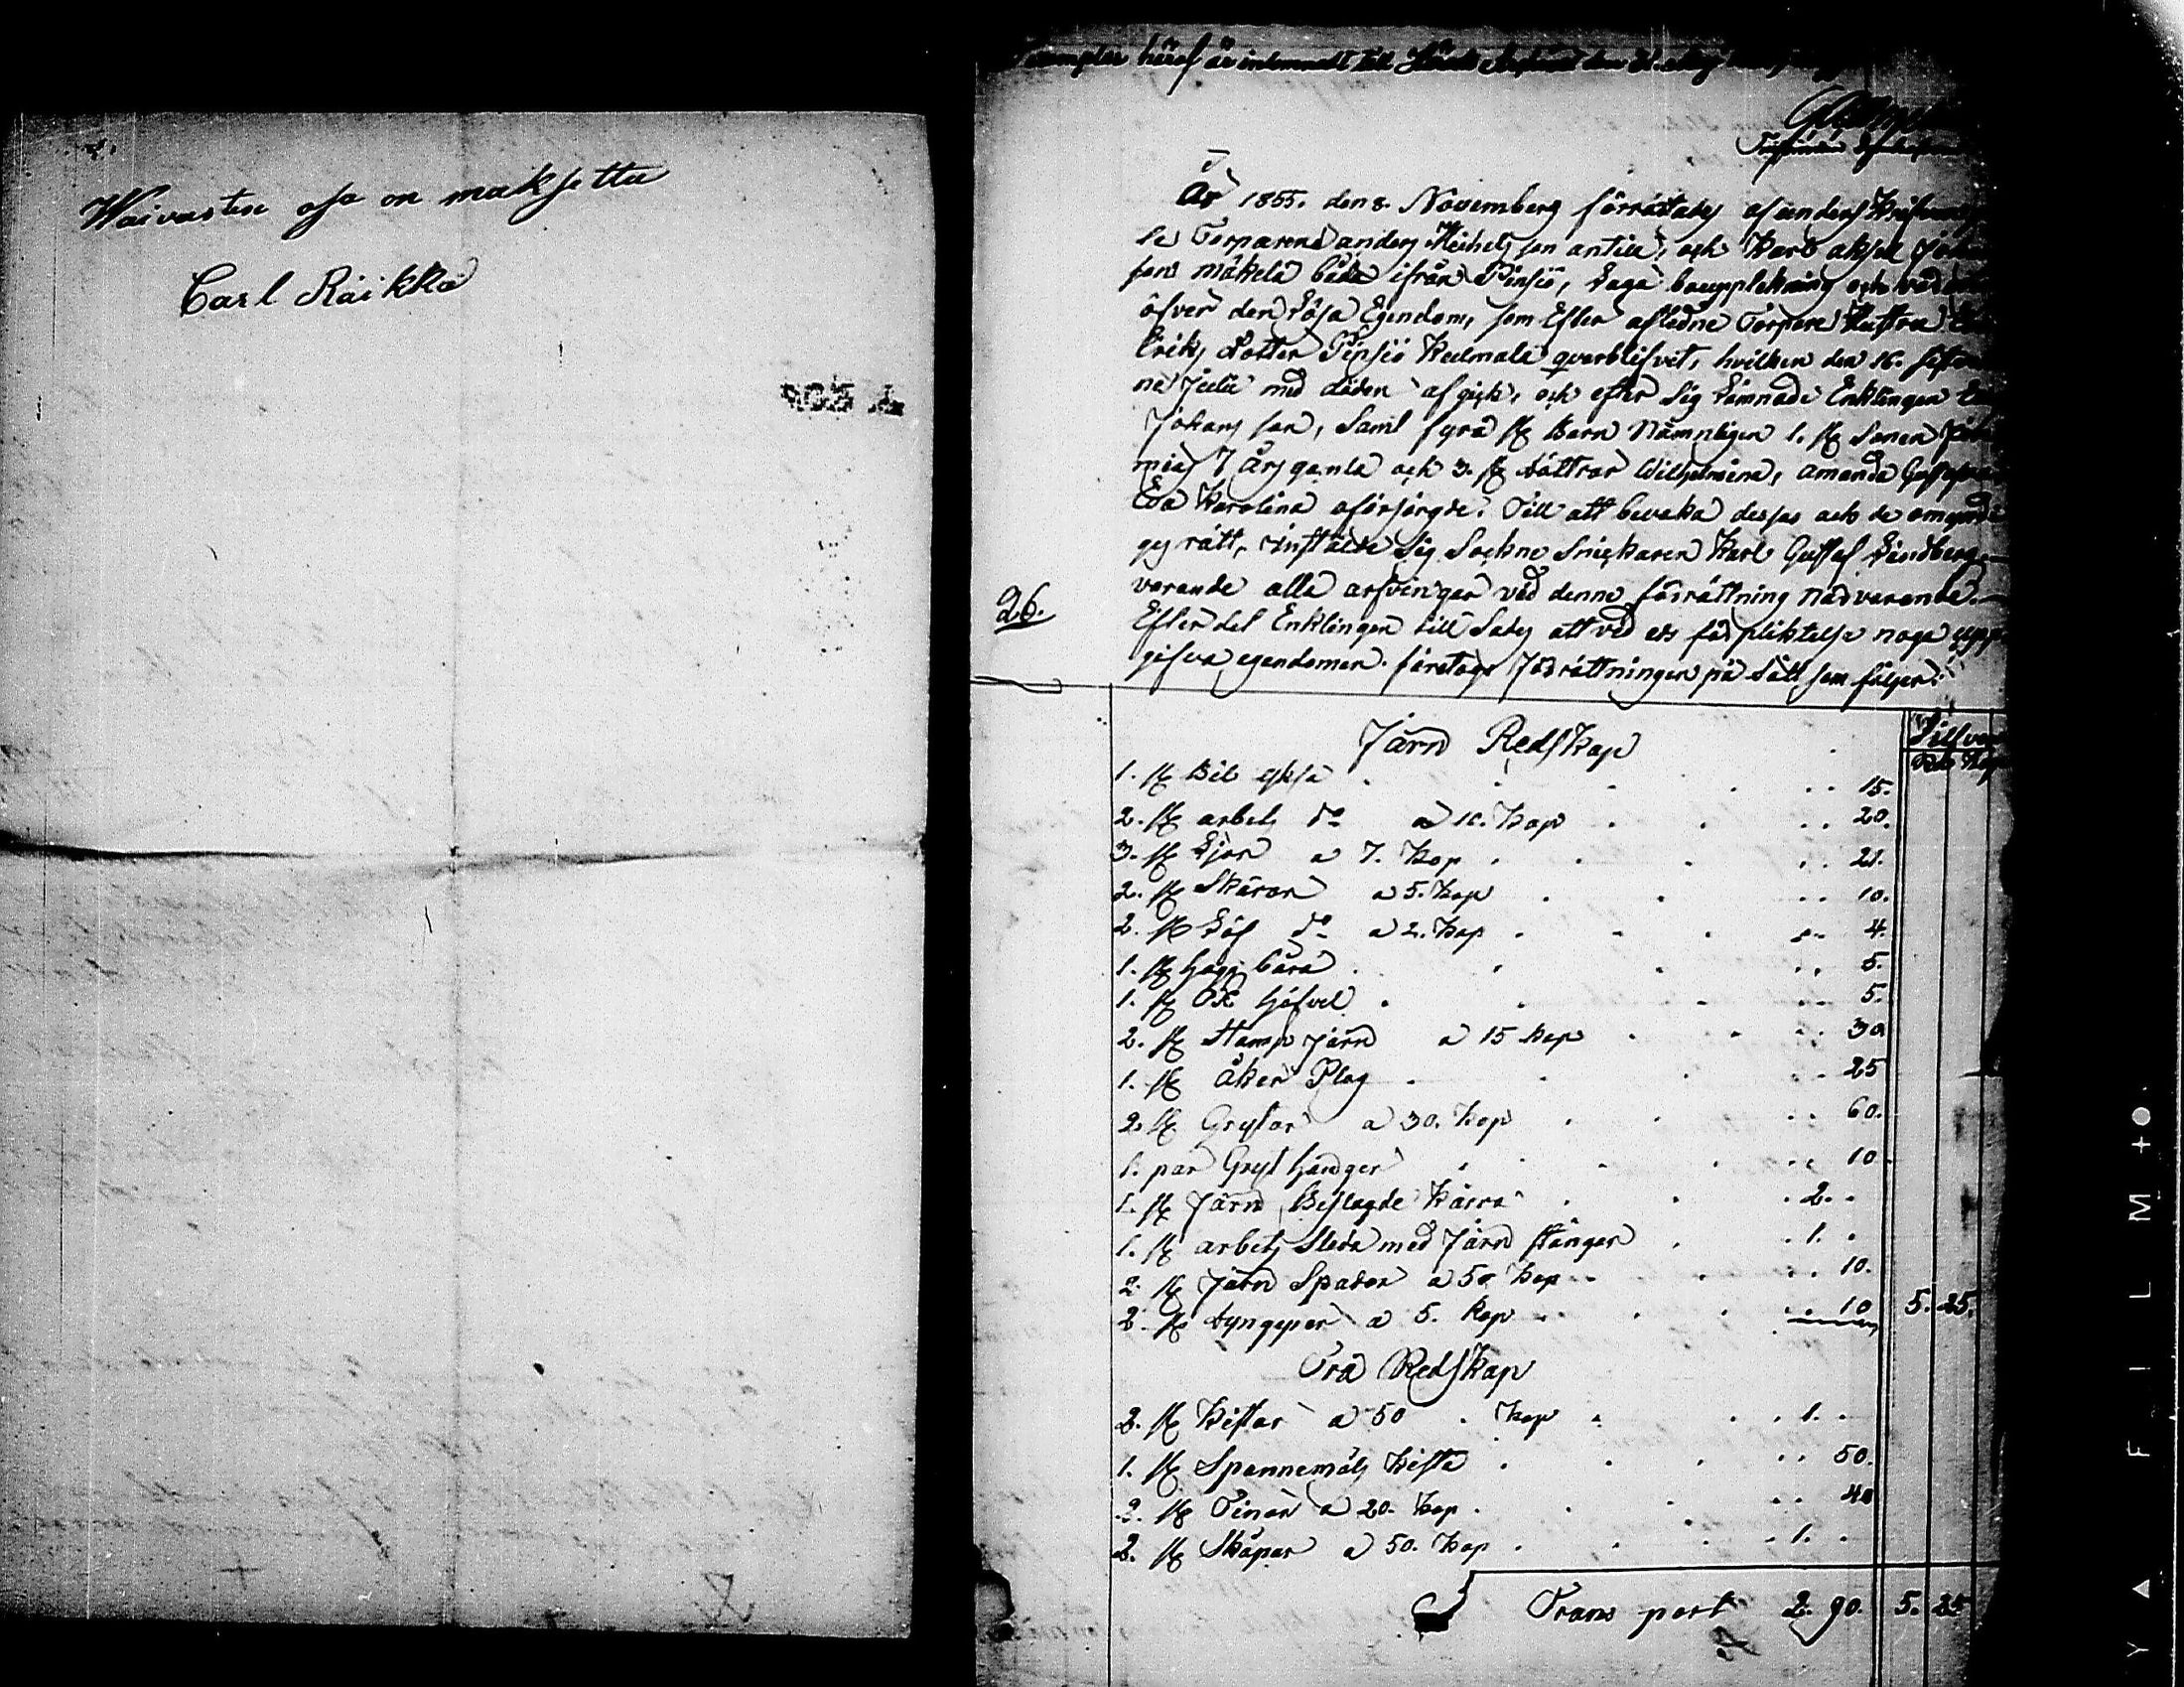 Waivasten osa on maksettu
Carl Räikkä
exemplar häraf är inlemnadt till
År 1855. den 8. Novemberg förrättades af undeskrifne
Torparene anders Mickels son antila, och Karl aksel
sons mäkelä båda ifrån Pinsiö, Laga bouppteckning och
öfver den Lösa Egendom, som Efter aflidne Torpare Hustru
Eriks Dotter Pinsiö Kulmala qvarblifvit, hvilken den 16.
Julii med döden afgick, och efter Sig Lämnade Enklingen
Johans son, Samt fyra st Barn Nämnligen 1. st Sonen
7 års gamla och 3. st döttrar Wilhelmina, amanda
Eva Karolina oförsörgde. Till att bevaka desses och de omyndi
ges rätt, instälde Sig Sockne Snickaren Karl Gustaf Lindberg
varande alla arfvingar vid denne förrättning närvarande.
26.
Efter det Enklingen till Sades att vid eds förpliktelse noga upp
gifva egendomen. företogs förrättningen på Sätt som följer:
Silfver
Rub Kop
Järn Redskap
1. st Bil yksa . . . . . 15.
2. st arbets do a 10. Kop . . . . 20.
3. st Ljar a 7. Kop . . . . . 21.
2. st Skäror a 5. Kop . . . . 10.
2. st Löf do a 2. Kop . . . . 4.
1. st . . . . . 5.
1. st . . . . . 5.
2. st Stamp järn a 15 Kop . . . . 30
1. st åker Plog . . . . . 25
2. st Grytor a 30. Kop . . . . 60.
1. par Gryt hänger . . . . . 10
1. st Järn Beslagde Kärra . . . 2. .
1. st arbets Släda med Järn stänger . . 1. .
2. st Järn Spador a 50 Kop . . . . 10.
2. st dyngyxer a 5. Kop . . . . 10 5. 25.
Trä Redskap
2. st Kistor a 50 . Kop . . . 1. .
1. st Spannemåls Kista . . . . . 50.
2. st Tinor a 20. Kop . . . . 40
2. st Skåpar a 50. Kop . . . 1. .
Trans port 2. 90. 5. 25